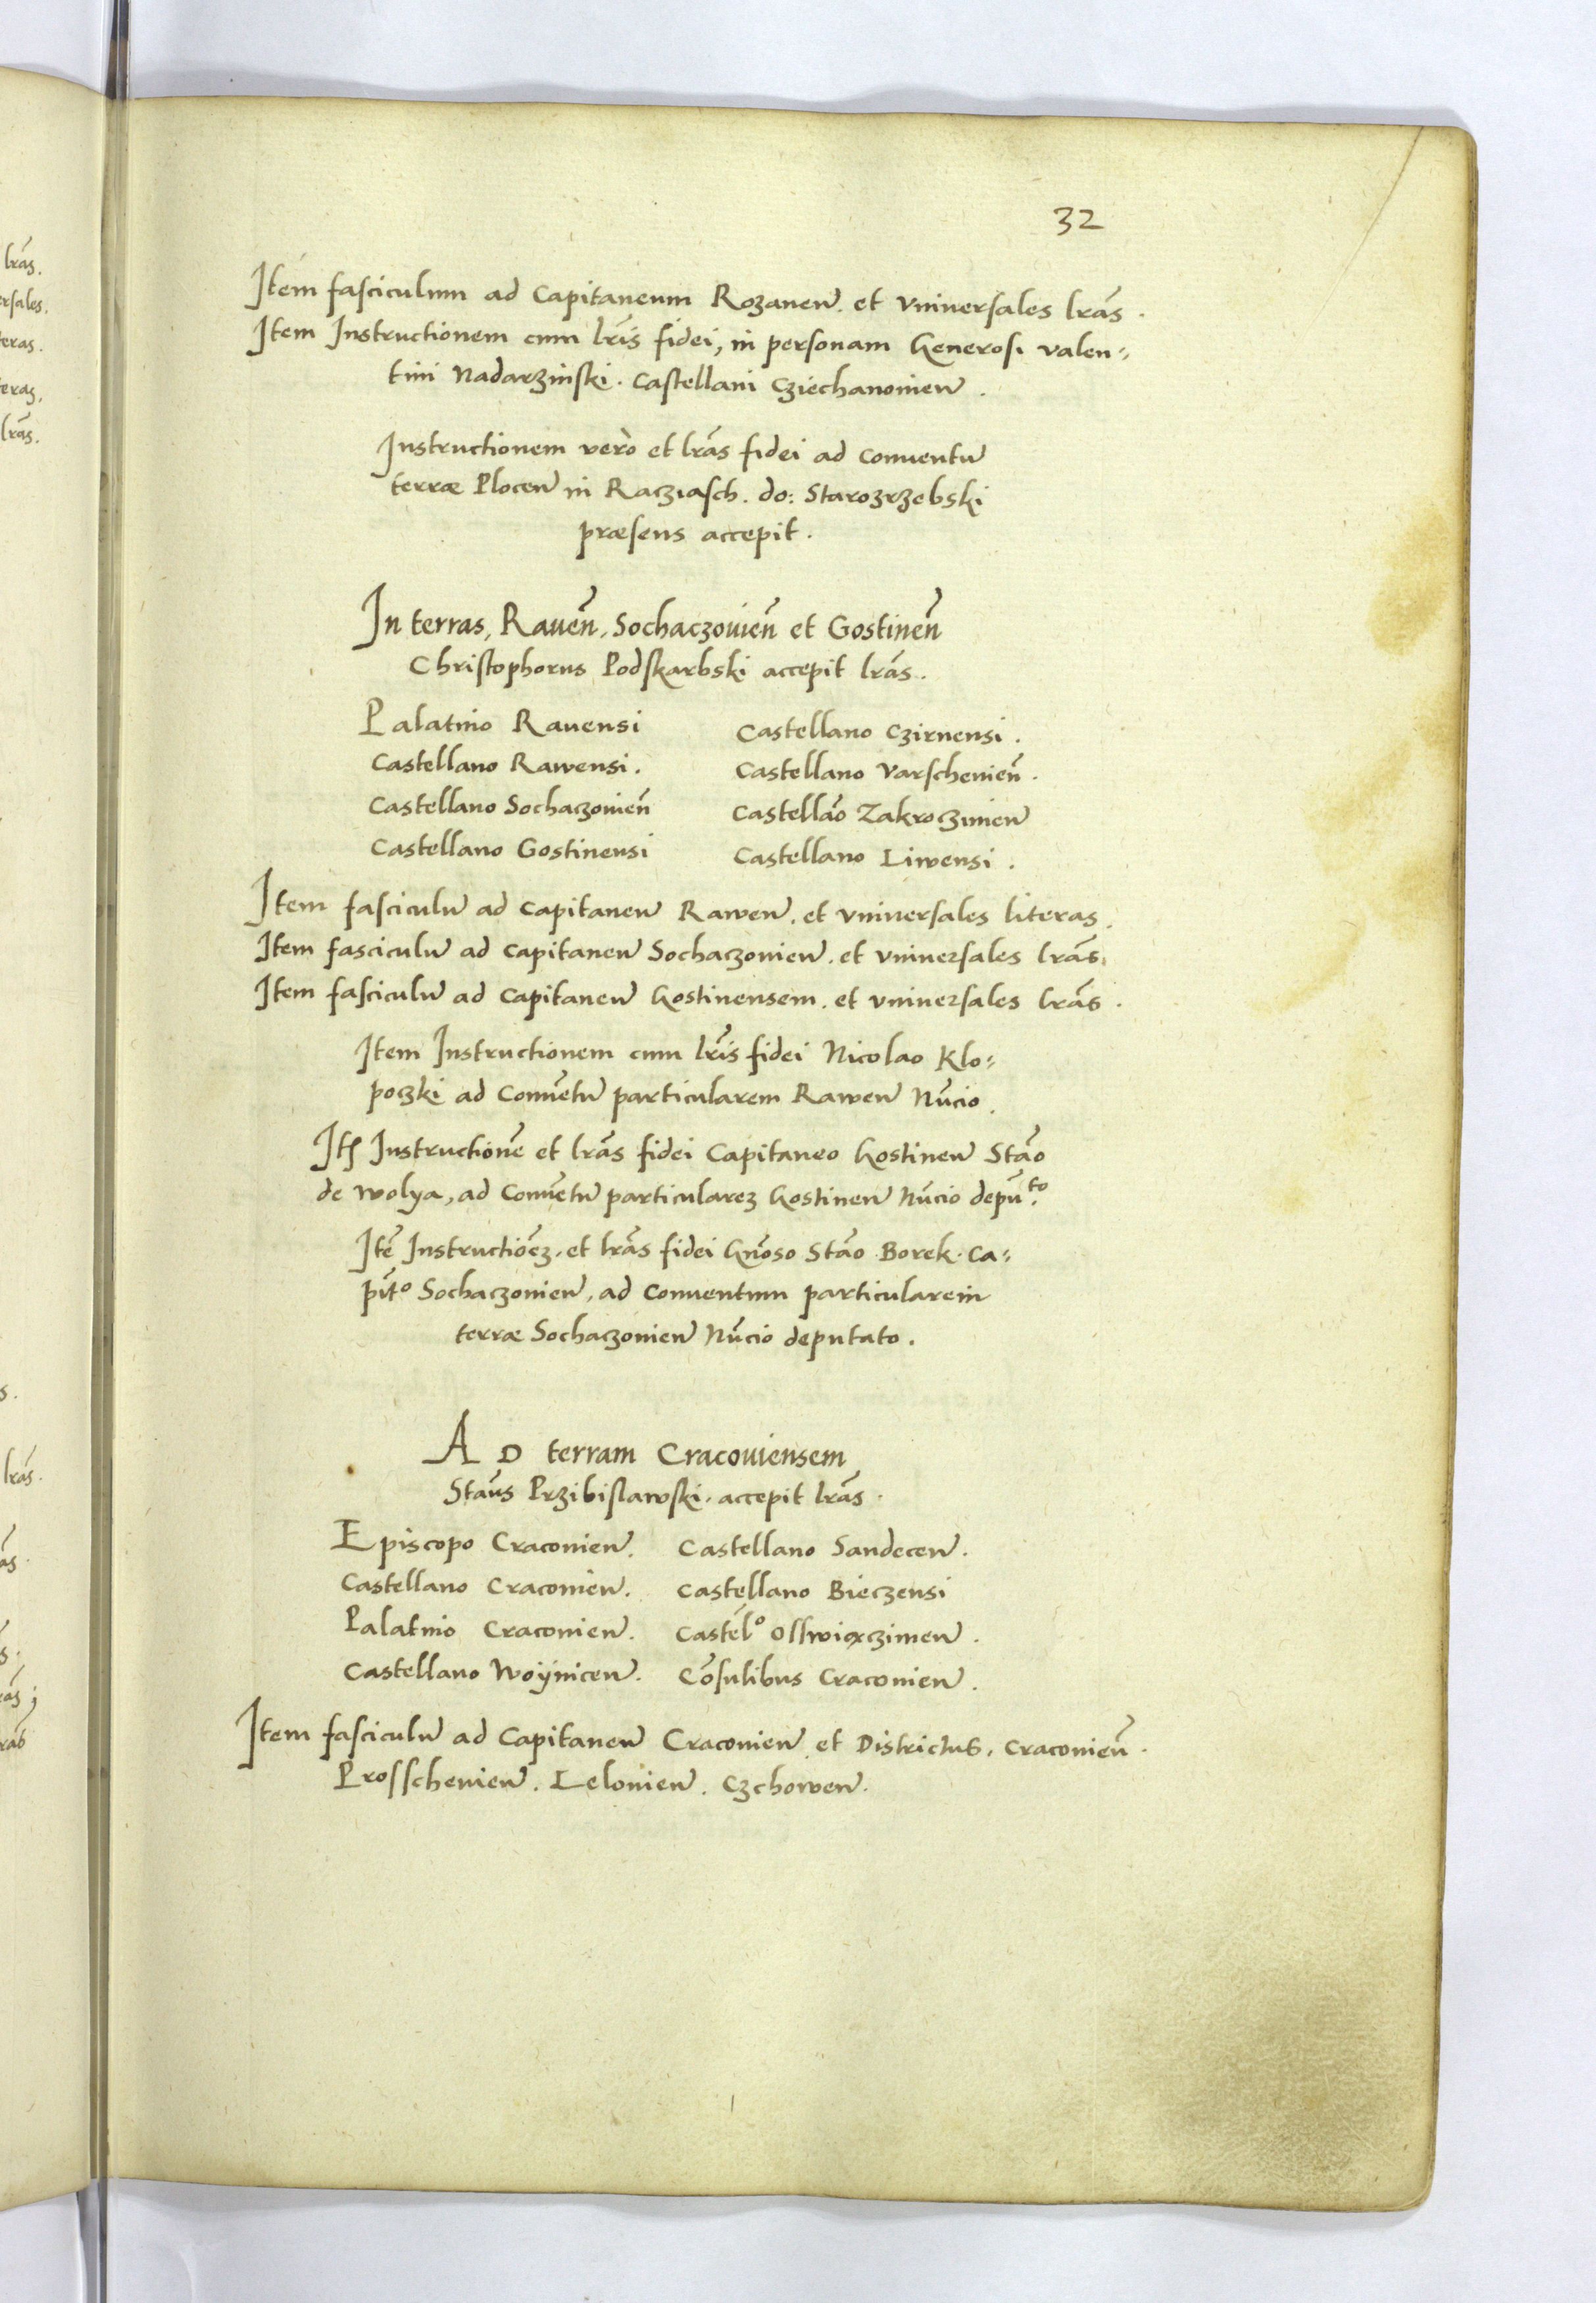 32
Item fasciculum ad Capitaneum Rozaneñ. et vniuersales lr̃as.
Item Instructionem cum lr̃is fidei, in personam Generosi Valen=
tini Nadarzinski. Castellani Cziechanouieñ.
Instructionem verò et lr̃as fidei ad Conuentũ
terræ Ploceñ in Racziasch. do: Starozrzebski
præsens accepit.
In terras, Raueñ, Sochaczouieñ et Gostineñ
Christophorus Podskarbski accepit lr̃as.
Palatino Rauensi
Castellano Rawensi.
Castellano Sochaczouieñ
Castellano Gostinensi
Castellano Czirnensi.
Castellano Varschenieñ.
Castellão Zakroczimeñ
Castellano Liwensi.
Item fasciculũ ad Capitaneũ Raweñ. et vniuersales literas.
Item fasciculũ ad Capitaneũ Sochaczouieñ. et vniuersales lr̃as.
Item fasciculũ ad Capitaneũ Gostinensem. et vniuersales lr̃as.
Item Instructionem cum lr̃is fidei Nicolao Klo=
poczki ad Conuẽtũ particularem Raweñ Nũcio.
Itẽ Instructionẽ et lr̃as fidei Capitaneo Gostineñ Stão
de Wolya, ad Conuẽtũ particularez Gostineñ Nũcio depũ.to
Itẽ Instructiõez. et lr̃as fidei Gñoso Stão Borek. Ca=
pit̃o Sochaczouieñ, ad Conuentum particularem
terræ Sochaczouieñ Nũcio deputato.
AD terram Cracouiensem
Stãus Przibislawski. accepit lr̃as.
Episcopo Cracouieñ.
Castellano Cracouieñ.
Palatino Cracouieñ.
Castellano Woÿniceñ.
Castellano Sandeceñ.
Castellano Bieczensi
Castel̃o Osswiqczimeñ.
Cõsulibus Cracouieñ.
Item fasciculũ ad Capitaneũ Cracouieñ et Districtus. Cracouieñ.
Prosschenieñ. Lelouieñ. Czchoweñ.